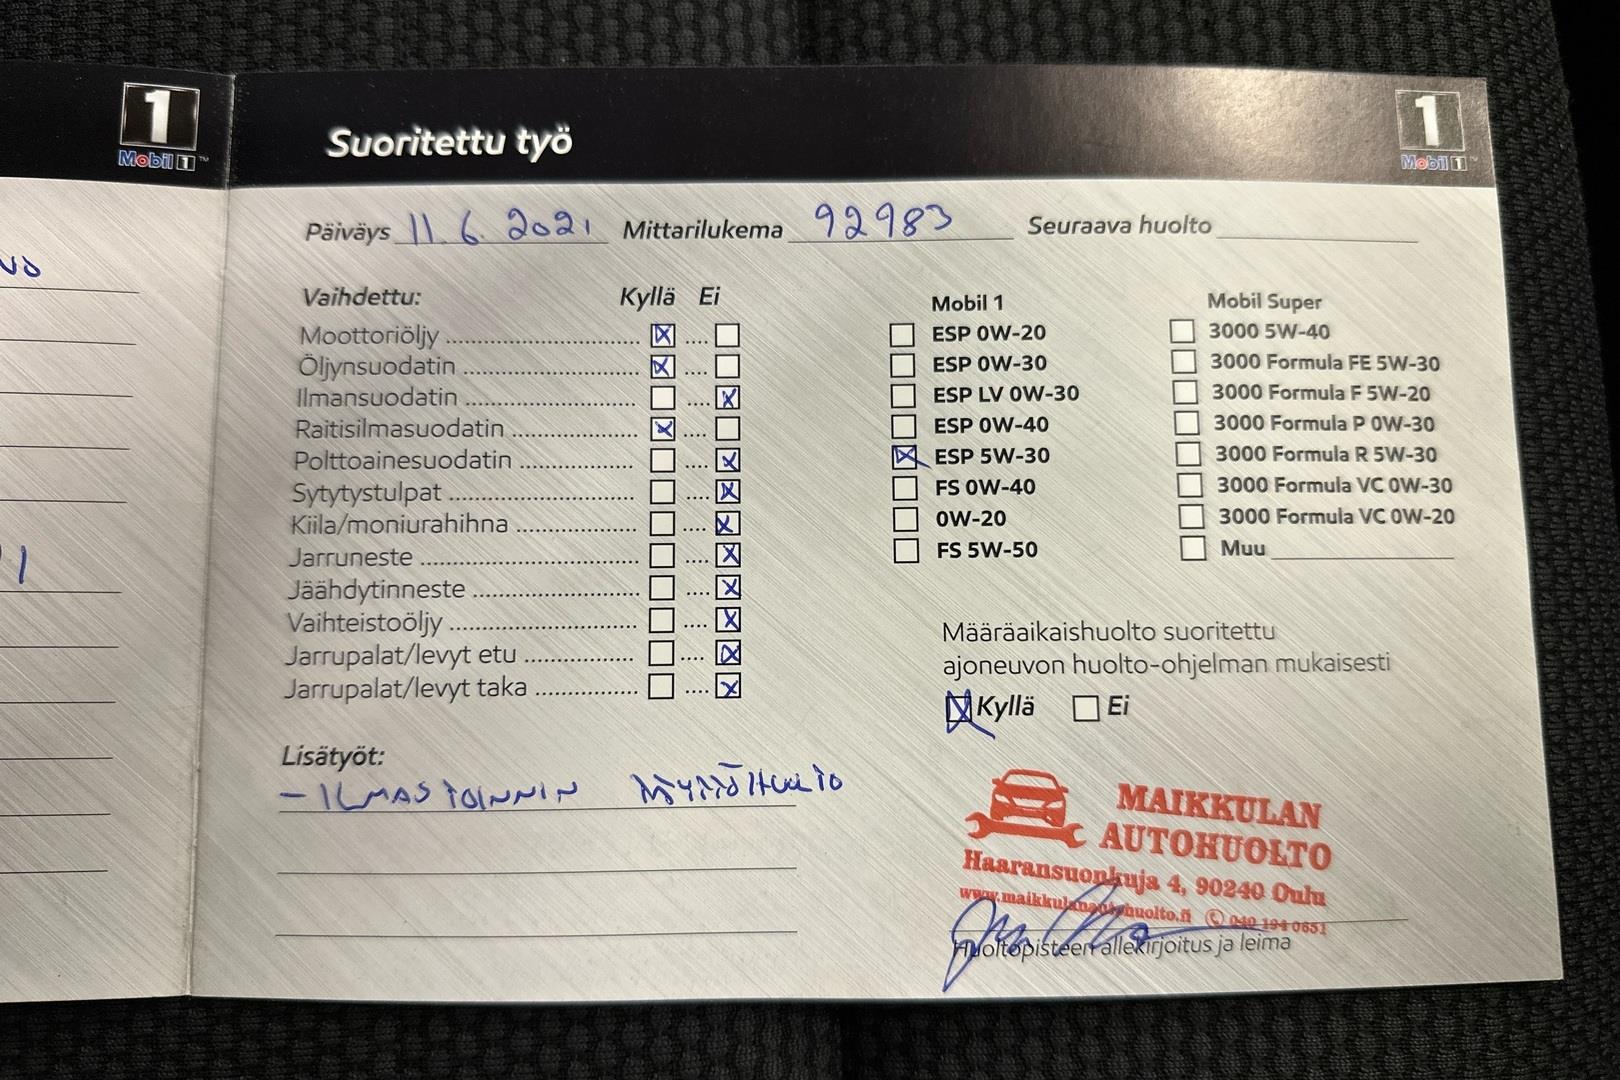 1
Mobil 1™
Suoritettu työ
1
Mobil 1™
Päiväys 11.6.2021 Mittarilukema 92983 Seuraava huolto
Vaihdettu: Kyllä Ei
Moottoriöljy
Öljynsuodatin
Ilmansuodatin
Raitisilmasuodatin
Polttoainesuodatin
Sytytystulpat
Kiila/moniurahihna
Jarruneste
Jäähdytinneste
Vaihteistoöljy
Jarrupalat/levyt etu
Jarrupalat/levyt taka
Mobil 1
ESP 0W-20
ESP 0W-30
ESP LV 0W-30
ESP 0W-40
ESP 5W-30
FS 0W-40
0W-20
FS 5W-50
Mobil Super
3000 5W-40
3000 Formula FE 5W-30
3000 Formula F 5W-20
3000 Formula P 0W-30
3000 Formula R 5W-30
3000 Formula VC 0W-30
3000 Formula VC 0W-20
Muu
Määräaikaishuolto suoritettu
ajoneuvon huolto-ohjelman mukaisesti
Kyllä Ei
Lisätyöt:
- ILMASTOINNIN HUOLTO
MAIKKULAN
AUTOHUOLTO
Haaransuonkuja 4, 90240 Oulu
www.maikkulanautohuolto.fi 040 194 0651
Huoltopisteen allekirjoitus ja leima